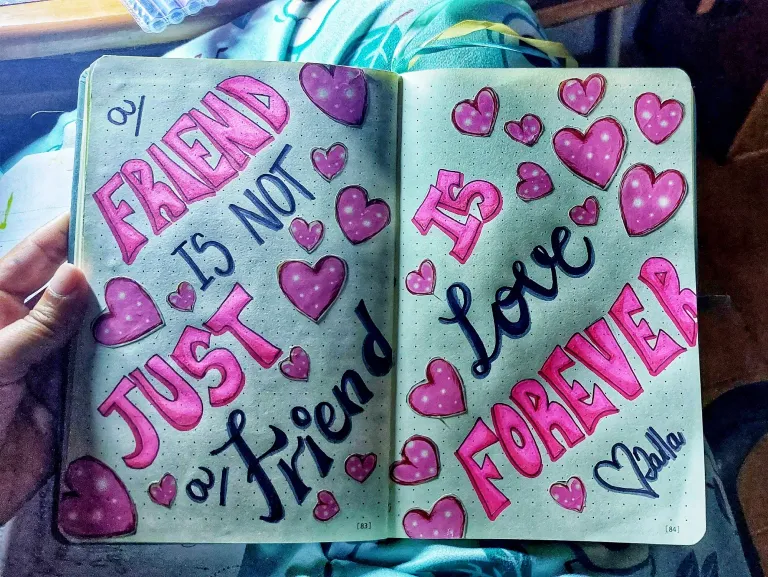 a/
FRIEND
IS NOT
JUST
a/ Friend
[83]
IS
Love
FOREVER
[84]